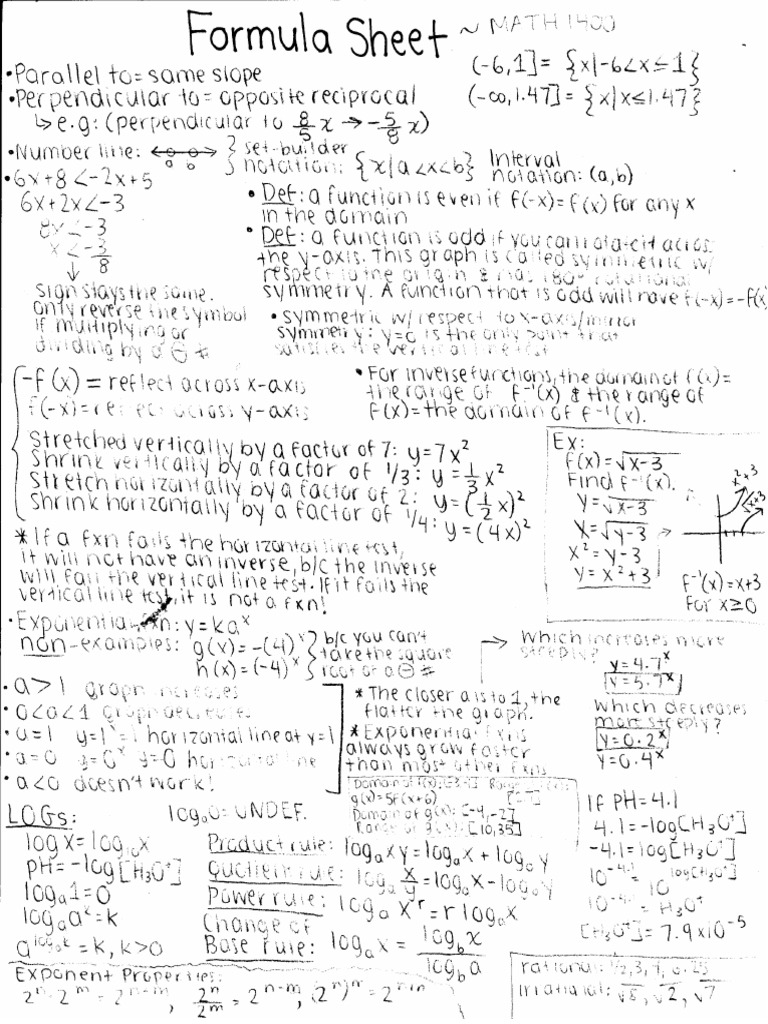 Formula Sheet ~ MATH 1400
• Parallel to = same slope
• Perpendicular to = opposite reciprocal
↳ e.g: (perpendicular to 8/5 x → -5/8 x)
(-6,1] = {x|-6<x≤1}
(-∞,1.47] = {x|x≤1.47}
• Number line: a b } set-builder notation: {x|a<x<b} Interval notation: (a,b)
• 6x+8<-2x+5
6x+2x<-3
8x<-3
x<-3/8
↓
sign stays the same.
only reverse the symbol
if multiplying or
dividing by a ⊖ #
• Def: a function is even if f(-x)=f(x) for any x
in the domain
• Def: a function is odd if you can rotate it across
the y-axis. This graph is called symmetric w/
respect to the origin & has 180° rotational
symmetry. A function that is odd will have f(-x)=-f(x)
• symmetric w/ respect to x-axis/mirror
symmetry: y=0 is the only point that
satisfies the vertical line test
-f(x) = reflect across x-axis
f(-x) = reflect across y-axis
Stretched vertically by a factor of 7: y=7x²
Shrink vertically by a factor of 1/3: y=1/3 x²
Stretch horizontally by a factor of 2: y=(1/2 x)²
Shrink horizontally by a factor of 1/4: y=(4x)²
• For inverse functions, the domain of f(x)=
the range of f⁻¹(x) & the range of
f(x)=the domain of f⁻¹(x).
Ex:
f(x)=√x-3
Find f⁻¹(x).
y=√x-3
x=√y-3
x²=y-3
y=x²+3
f⁻¹(x)=x+3
for x≥0
* If a fxn fails the horizontal line test,
it will not have an inverse, b/c the inverse
will fail the vertical line test. If it fails the
vertical line test, it is not a fxn!
• Exponential fxn: y=kaˣ
non-examples: g(x)=-(4)ˣ
h(x)=(-4)ˣ
} b/c you can't
take the square
root of a ⊖ #
→ Which increases more
steeply?
y=4.7ˣ
y=5.7ˣ
Which decreases
more steeply?
y=0.2ˣ
y=0.4ˣ
• a>1 graph increases
• 0<a<1 graph decreases
• a=1 y=1ˣ=1 horizontal line at y=1
• a=0 y=0ˣ y=0 horizontal line
• a<0 doesn't work!
* The closer a is to 1, the
flatter the graph.
* Exponential fxns
always grow faster
than most other fxns
g(x)=5f(x+6)
Domain of g(x): [-4,-2]
Range of g(x): [10,35]
LOGs:
logₐ0=UNDEF.
log x=log₁₀x
pH=-log[H₃O⁺]
logₐ1=0
logₐaᵏ=k
a^logₐk=k, k>0
Product rule: logₐxy=logₐx+logₐy
Quotient rule: logₐ x/y=logₐx-logₐy
Power rule: logₐxʳ=r logₐx
Change of
Base rule: logₐx = log_b x / log_b a
If PH=4.1
4.1=-log[H₃O⁺]
-4.1=log[H₃O⁺]
10^-4.1=10^log[H₃O⁺]
10^-4.1=H₃O⁺
[H₃O⁺]=7.9×10⁻⁵
Exponent Properties:
2ⁿ·2ᵐ=2ⁿ⁻ᵐ, 2ⁿ/2ᵐ=2ⁿ⁻ᵐ,
rational: 1/2, 3, 4, 0.25
irrational: √8, √2, √7